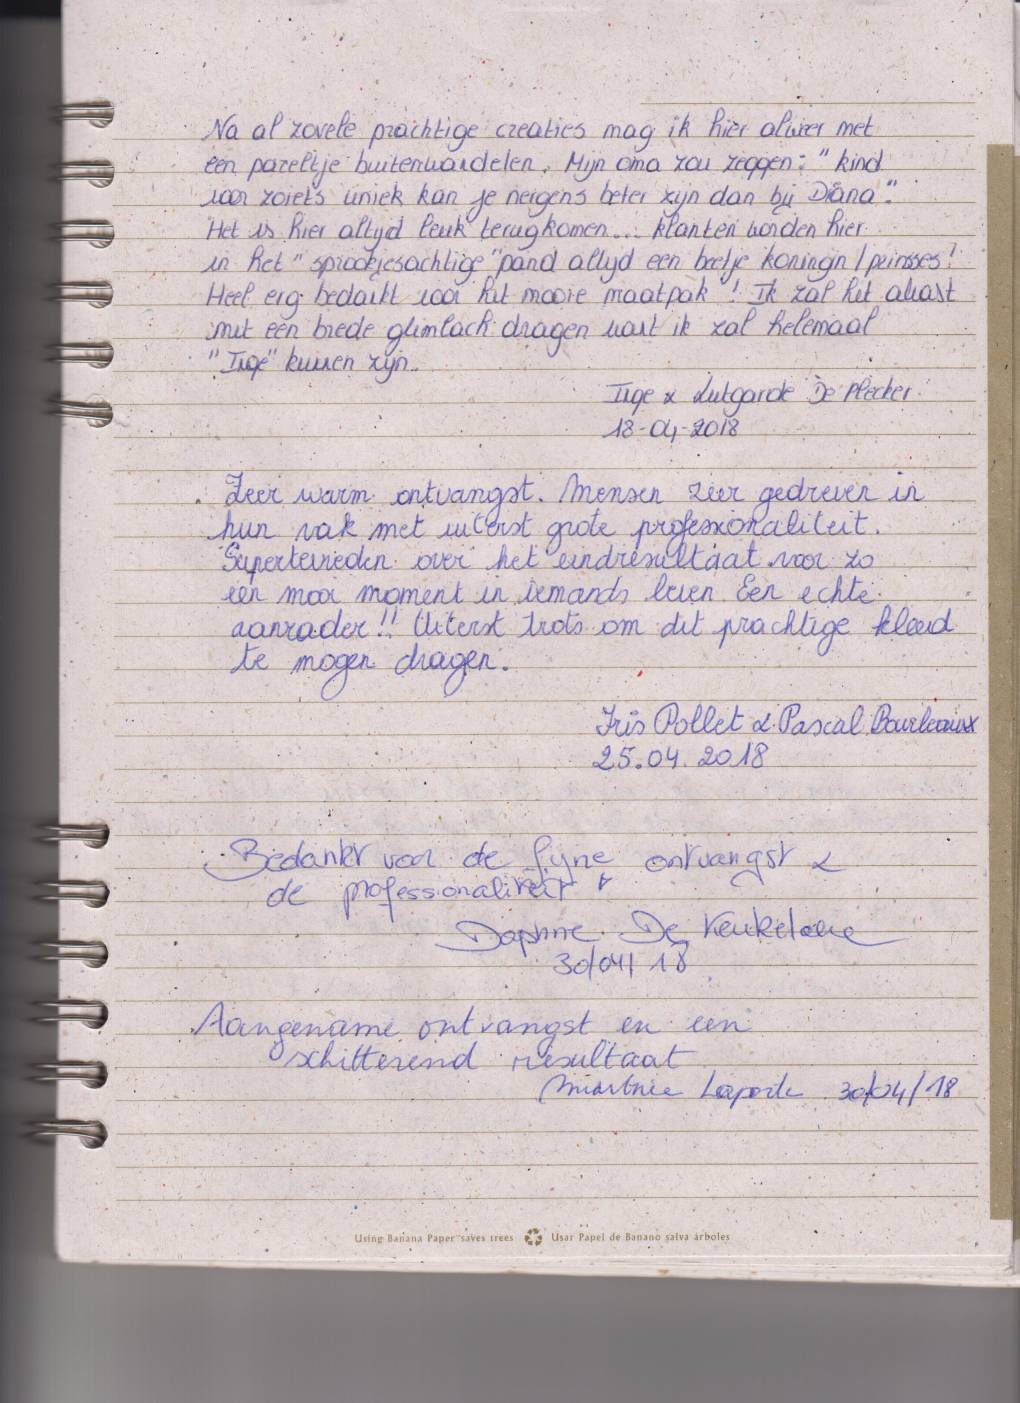 Na al zovele prachtige creaties mag ik hier alweer met
een pareltje buitenwandelen. Mijn oma zou zeggen: "kind
voor zoiets uniek kan je nergens beter zijn dan bij Diana".
Het is hier altijd leuk terugkomen... klanten worden hier
in het "sprookjesachtige" pand altijd een beetje koningin/prinsses!
Heel erg bedankt voor het mooie maatpak! Ik zal het alvast
met een brede glimlach dragen want ik zal helemaal
"Inge" kunnen zijn.
Inge & Lutgarde De Plecker
18-04-2018
Zeer warm ontvangst. Mensen zeer gedreven in
hun vak met uiterst grote professionaliteit.
Supertevreden over het eindresultaat voor zo
een mooi moment in iemands leven. Een echte
aanrader!! Uiterst trots om dit prachtige kleed
te mogen dragen.
Iris Pollet & Pascal
25.04.2018
Bedankt voor de fijne ontvangst &
de professionaliteit
Daphne De Keukelaere
30/04/18
Aangename ontvangst en een
schitterend resultaat
30/04/18
Using Banana Paper saves trees Usar Papel de Banano salva árboles